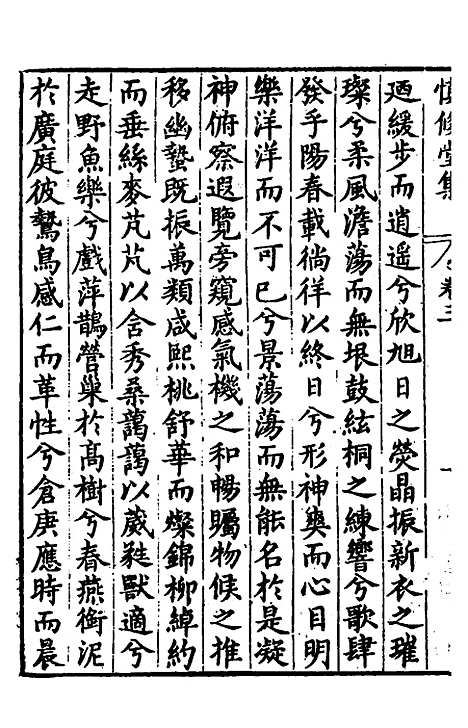 慎修堂集 卷三
廼緩步而逍遥兮欣旭日之熒晶振新衣之璀
璨兮柔風澹蕩而無垠鼓絃桐之練響兮歌肆
發乎陽春載徜徉以終日兮形神與而心目明
樂洋洋而不可已兮景蕩蕩而無能名於是凝
神俯察遐覽旁窺感氣機之和暢矚物候之推
移幽蟄既振萬類咸熙桃舒華而燦錦柳綽約
而垂絲麥芃芃以含秀桑藹藹以葳蕤獸適兮
走野魚樂兮戲萍鵲營巢於高樹兮春燕銜泥
於廣庭彼鷙鳥感仁而革性兮倉庚應時而晨